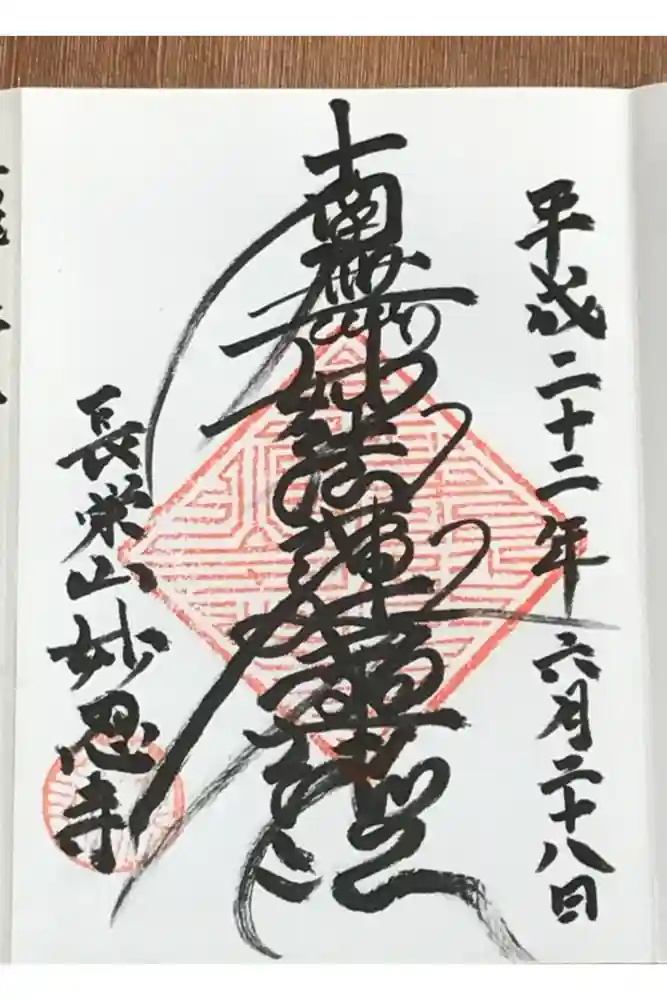 平成二十二年六月二十八日
南無妙法蓮華経
長栄山妙恩寺